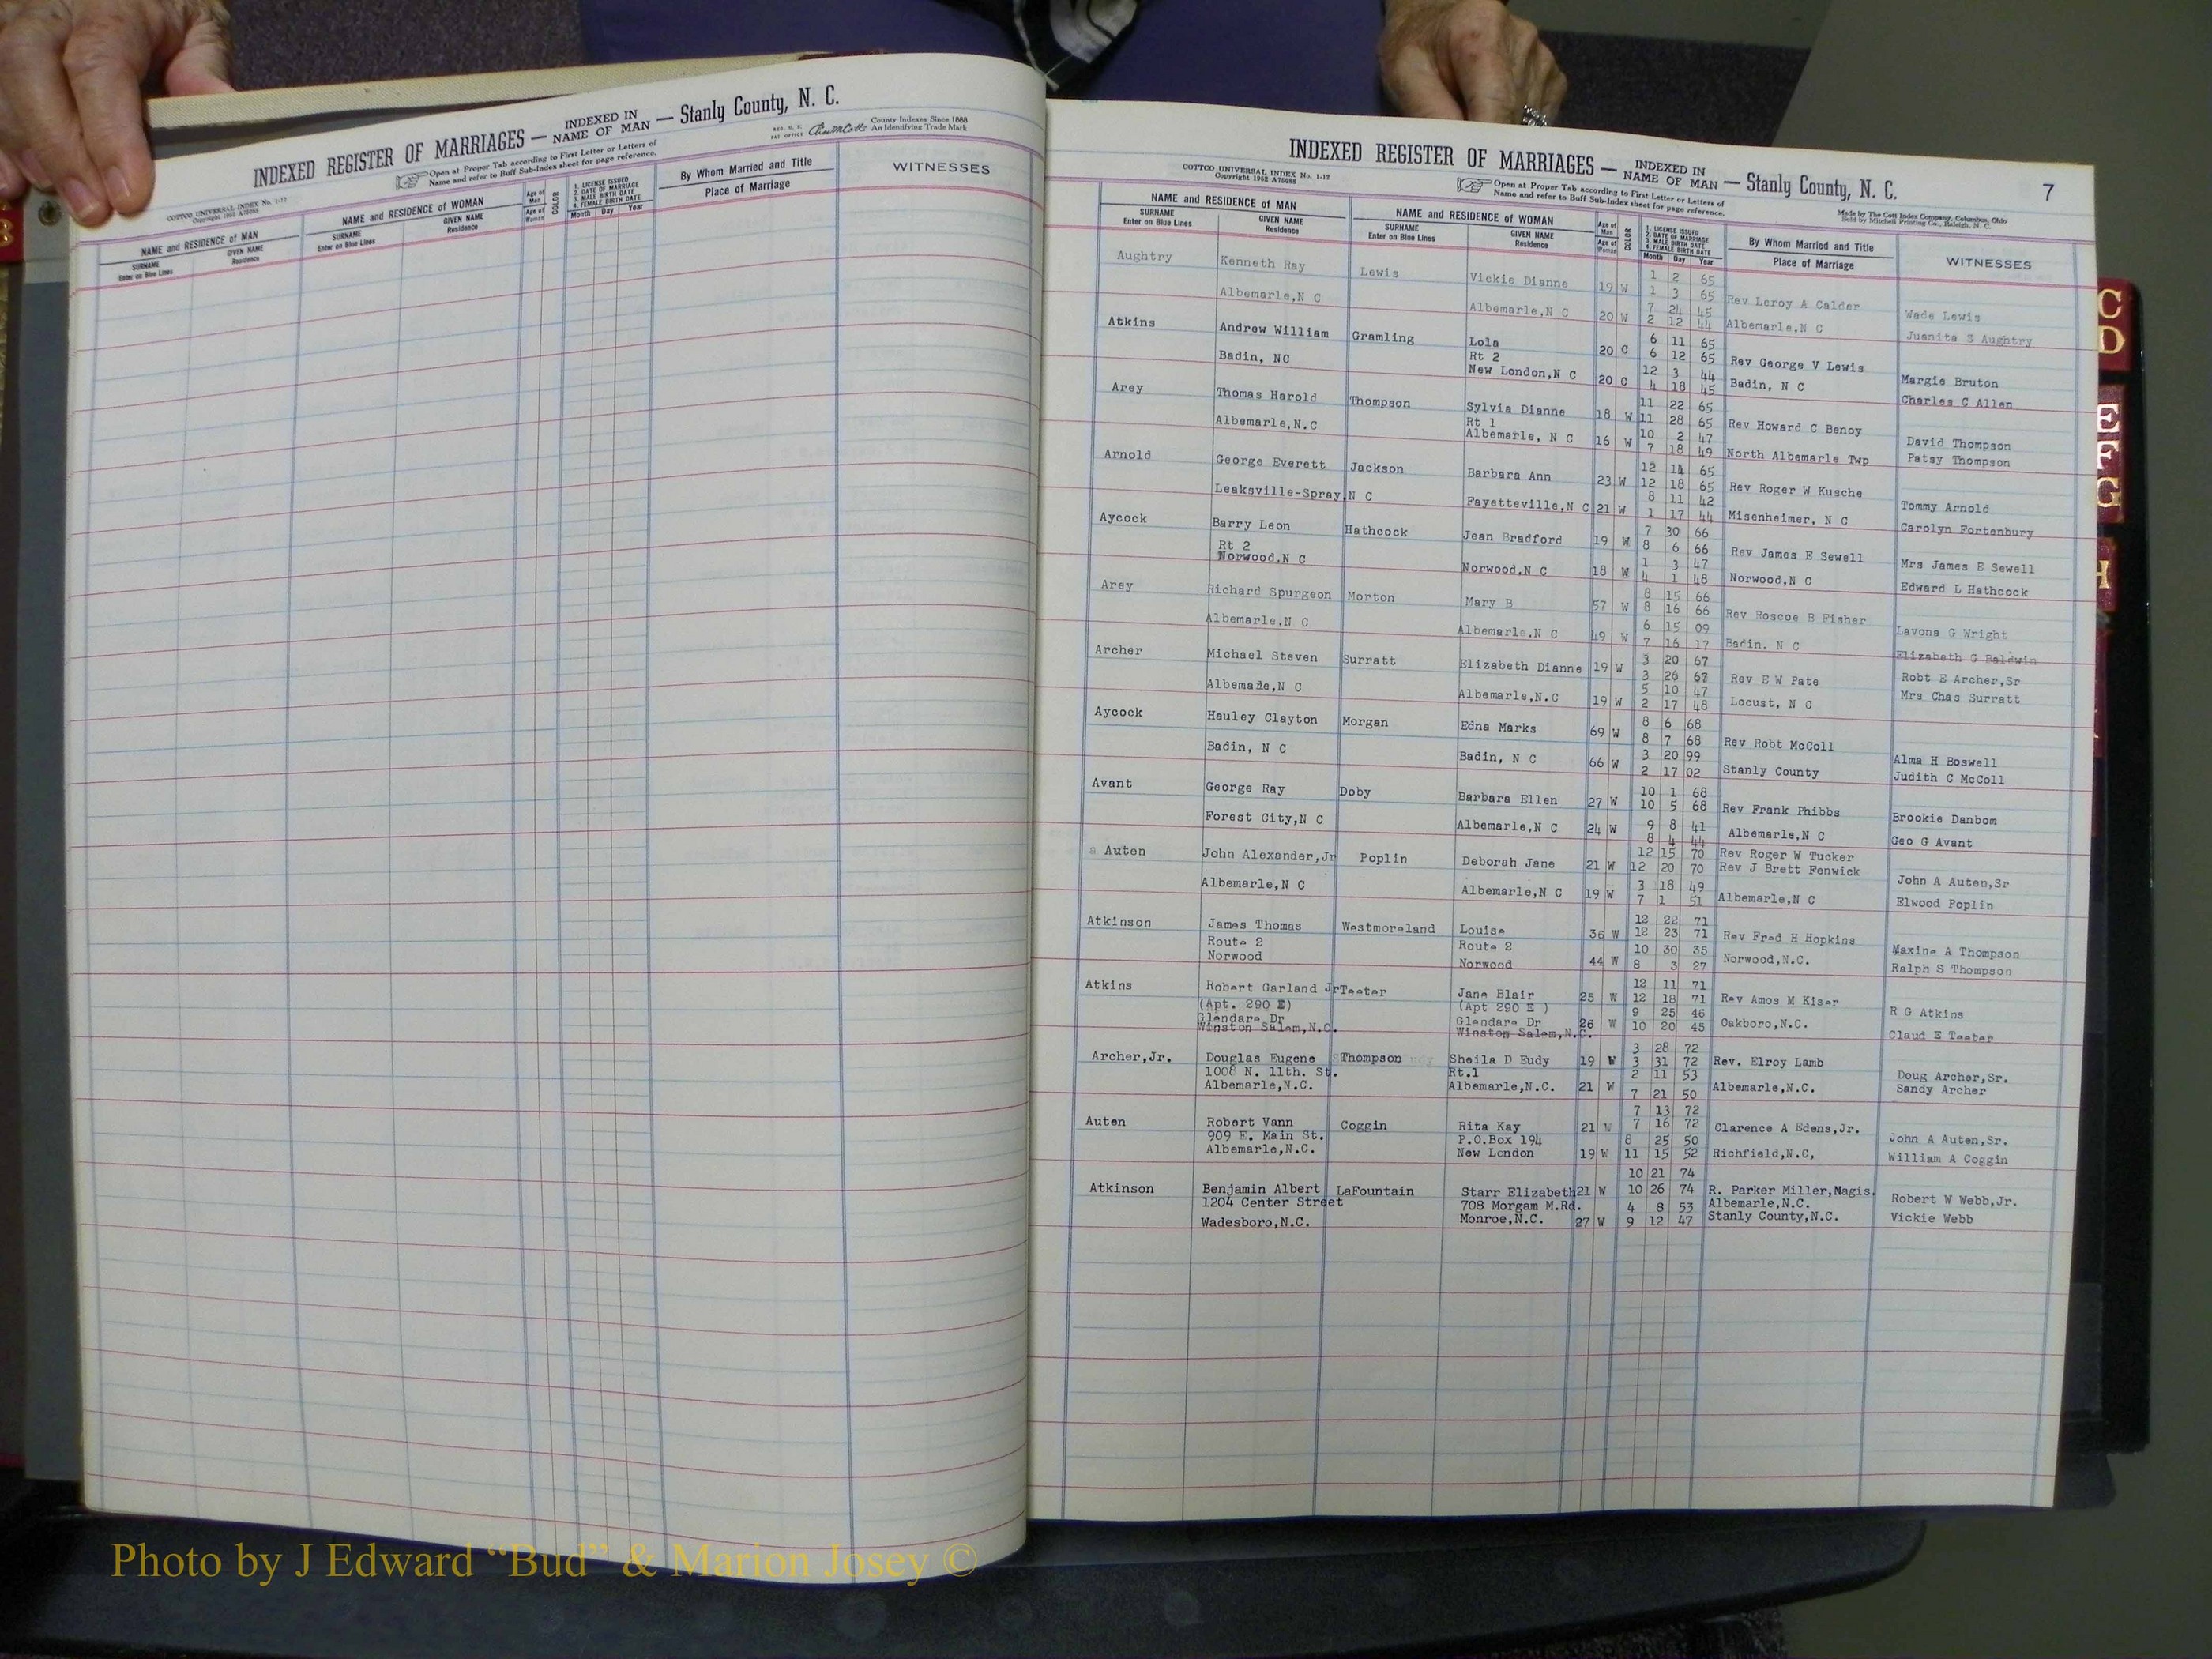 INDEXED REGISTER OF MARRIAGES — INDEXED IN NAME OF MAN — Stanly County, N. C.
Open at Proper Tab according to First Letter or Letters of
Name and refer to Buff Sub-Index sheet for page reference.
County Indexes Since 1888
An Identifying Trade Mark
COTTCO UNIVERSAL INDEX No. 1-12
NAME and RESIDENCE OF MAN
SURNAME
Enter on Blue Lines
GIVEN NAME
Residence
NAME and RESIDENCE OF WOMAN
SURNAME
Enter on Blue Lines
GIVEN NAME
Residence
Age of Man
Age of Woman
COLOR
1. LICENSE ISSUED
2. DATE OF MARRIAGE
3. MALE BIRTH DATE
4. FEMALE BIRTH DATE
Month Day Year
By Whom Married and Title
Place of Marriage
WITNESSES
INDEXED REGISTER OF MARRIAGES — INDEXED IN NAME OF MAN — Stanly County, N. C.
7
COTTCO UNIVERSAL INDEX No. 1-12
Copyright 1952 A75088
Open at Proper Tab according to First Letter or Letters of
Name and refer to Buff Sub-Index sheet for page reference.
Made by The Cott Index Company, Columbus, Ohio
Sold by Mitchell Printing Co., Raleigh, N. C.
NAME and RESIDENCE OF MAN
SURNAME
Enter on Blue Lines
GIVEN NAME
Residence
NAME and RESIDENCE OF WOMAN
SURNAME
Enter on Blue Lines
GIVEN NAME
Residence
Age of Man
Age of Woman
COLOR
1. LICENSE ISSUED
2. DATE OF MARRIAGE
3. MALE BIRTH DATE
4. FEMALE BIRTH DATE
Month Day Year
By Whom Married and Title
Place of Marriage
WITNESSES
Aughtry Kenneth Ray Lewis Vickie Dianne 19 W 1 2 65
1 3 65 Rev Leroy A Calder Wade Lewis
Albemarle,N C Albemarle,N C 20 W 7 24 45
2 12 44 Albemarle,N C Juanita S Aughtry
Atkins Andrew William Gramling Lola 20 C 6 11 65
Rt 2 6 12 65 Rev George V Lewis Margie Bruton
Badin, NC New London,N C 20 C 12 3 44
4 18 45 Badin, N C Charles C Allen
Arey Thomas Harold Thompson Sylvia Dianne 18 W 11 22 65
Rt 1 11 28 65 Rev Howard C Benoy David Thompson
Albemarle,N.C Albemarle, N C 16 W 10 2 47
7 18 49 North Albemarle Twp Patsy Thompson
Arnold George Everett Jackson Barbara Ann 23 W 12 14 65
12 18 65 Rev Roger W Kusche Tommy Arnold
Leaksville-Spray,N C Fayetteville,N C 21 W 8 11 42
1 17 44 Misenheimer, N C Carolyn Fortenbury
Aycock Barry Leon Hathcock Jean Bradford 19 W 7 30 66
Rt 2 8 6 66 Rev James E Sewell Mrs James E Sewell
Norwood.N C Norwood.N C 18 W 1 3 47
4 1 48 Norwood,N C Edward L Hathcock
Arey Richard Spurgeon Morton Mary B 57 W 8 15 66
8 16 66 Rev Roscoe B Fisher Lavona G Wright
Albemarle.N C Albemarle.N C 49 W 6 15 09
7 16 17 Badin. N C Elizabeth G Baldwin
Archer Michael Steven Surratt Elizabeth Dianne 19 W 3 20 67
3 26 67 Rev E W Pate Robt E Archer,Sr
Albemale,N C Albemarle,N.C 19 W 5 10 47
2 17 48 Locust, N C Mrs Chas Surratt
Aycock Hauley Clayton Morgan Edna Marks 69 W 8 6 68
8 7 68 Rev Robt McColl Alma H Boswell
Badin, N C Badin, N C 66 W 3 20 99
2 17 02 Stanly County Judith C McColl
Avant George Ray Doby Barbara Ellen 27 W 10 1 68
10 5 68 Rev Frank Phibbs Brookie Danbom
Forest City,N C Albemarle,N C 24 W 9 8 41
8 4 44 Albemarle,N C Geo G Avant
a Auten John Alexander,Jr Poplin Deborah Jane 21 W 12 15 70 Rev Roger W Tucker
12 20 70 Rev J Brett Fenwick John A Auten,Sr
Albemarle,N C Albemarle,N C 19 W 3 18 49
7 1 51 Albemarle,N C Elwood Poplin
Atkinson James Thomas Westmoreland Louise 36 W 12 22 71
Route 2 Route 2 12 23 71 Rev Fred H Hopkins Maxine A Thompson
Norwood Norwood 44 W 10 30 35
8 3 27 Norwood,N.C. Ralph S Thompson
Atkins Robert Garland Jr Teeter Jane Blair 25 W 12 11 71
(Apt. 290 E) (Apt 290 E ) 12 18 71 Rev Amos M Kiser R G Atkins
Glendare Dr Glendare Dr 26 W 9 25 46
Winston Salem,N.C. Winston Salem,N.C. 10 20 45 Oakboro,N.C. Claud E Teeter
Archer,Jr. Douglas Eugene Thompson Sheila D Eudy 19 W 3 28 72
1008 N. 11th. St. Rt.1 3 31 72 Rev. Elroy Lamb Doug Archer,Sr.
Albemarle,N.C. Albemarle,N.C. 21 W 2 11 53
7 21 50 Albemarle,N.C. Sandy Archer
Auten Robert Vann Coggin Rita Kay 21 W 7 13 72
909 E. Main St. P.O.Box 194 7 16 72 Clarence A Edens,Jr. John A Auten,Sr.
Albemarle,N.C. New London 19 W 8 25 50
11 15 52 Richfield,N.C, William A Coggin
Atkinson Benjamin Albert LaFountain Starr Elizabeth 21 W 10 21 74
1204 Center Street 708 Morgam M.Rd. 10 26 74 R. Parker Miller,Magis. Robert W Webb,Jr.
4 8 53 Albemarle,N.C.
Wadesboro,N.C. Monroe,N.C. 27 W 9 12 47 Stanly County,N.C. Vickie Webb
C
D
E
F
G
H
Photo by J Edward “Bud” & Marion Josey ©